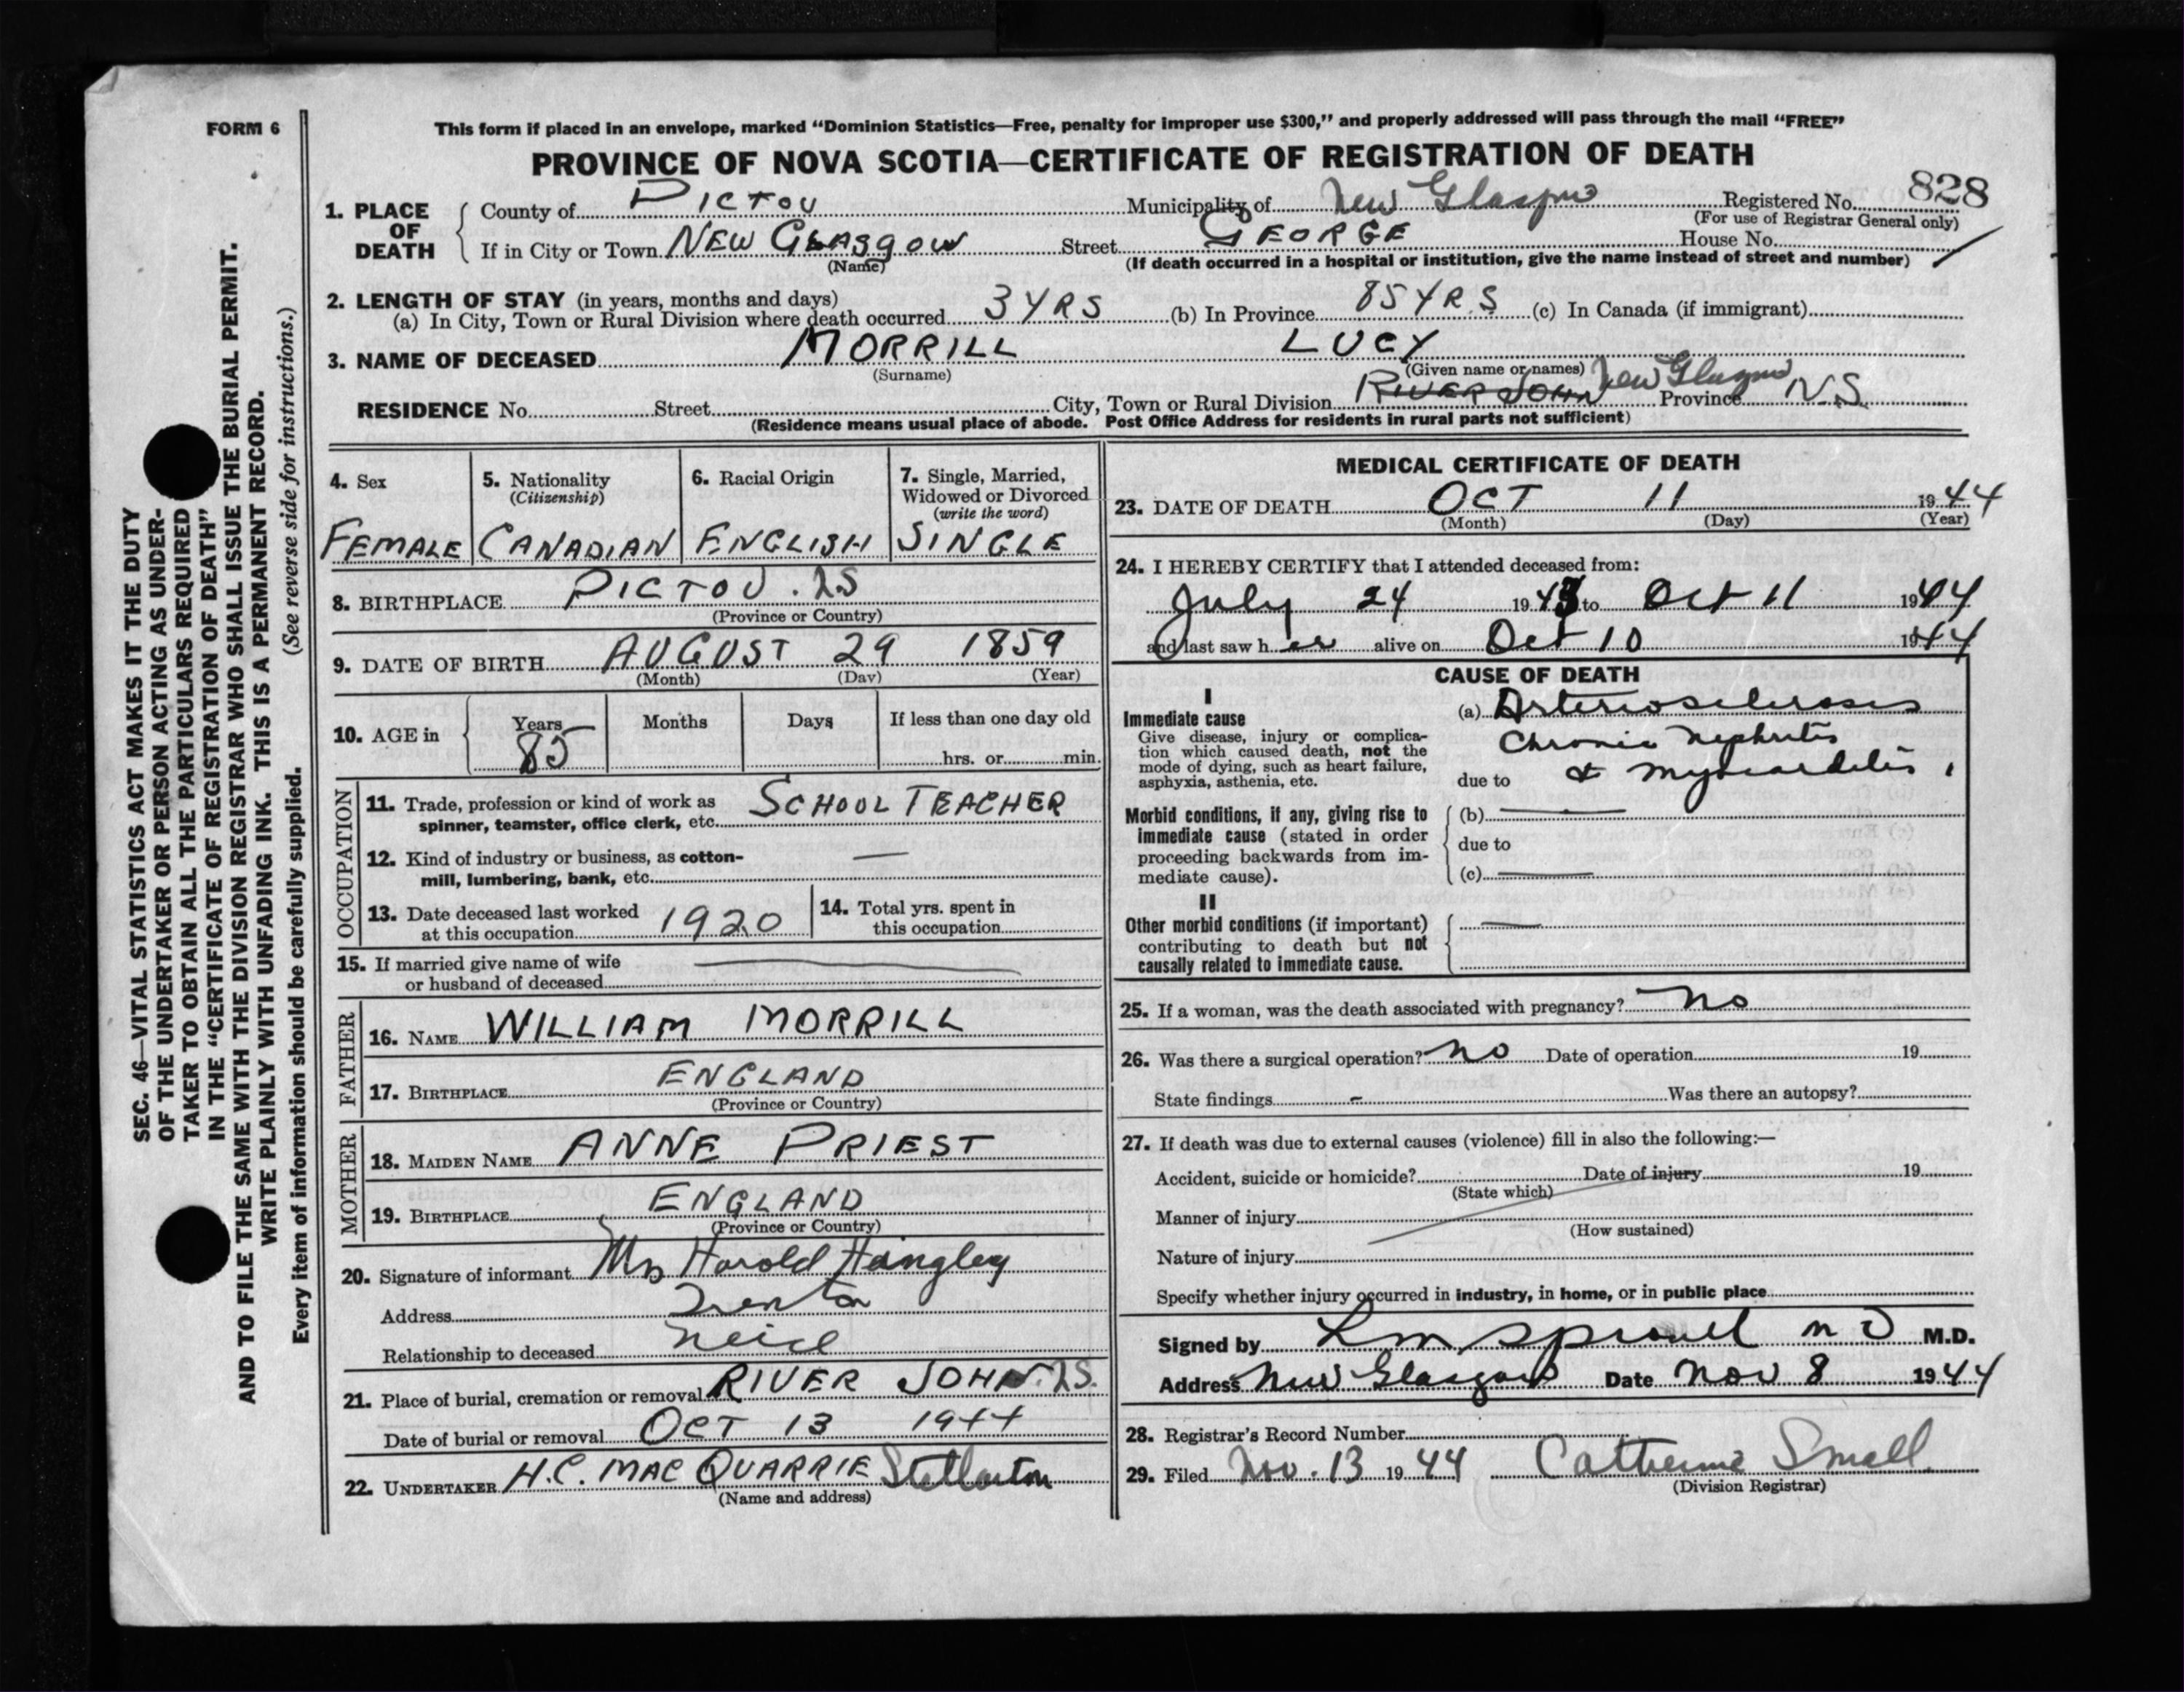 FORM 6
This form if placed in an envelope, marked "Dominion Statistics—Free, penalty for improper use $300," and properly addressed will pass through the mail "FREE"
PROVINCE OF NOVA SCOTIA—CERTIFICATE OF REGISTRATION OF DEATH
828
1. PLACE OF DEATH
County of PICTOU Municipality of New Glasgow Registered No.
(For use of Registrar General only)
If in City or Town NEW GLASGOW Street GEORGE House No.
(Name) (If death occurred in a hospital or institution, give the name instead of street and number)
2. LENGTH OF STAY (in years, months and days)
(a) In City, Town or Rural Division where death occurred 3 YRS (b) In Province 85 YRS (c) In Canada (if immigrant)
3. NAME OF DECEASED MORRILL LUCY
(Surname) (Given name or names)
RESIDENCE No. Street City, Town or Rural Division RIVER JOHN New Glasgow Province N.S.
(Residence means usual place of abode. Post Office Address for residents in rural parts not sufficient)
4. Sex 5. Nationality (Citizenship) 6. Racial Origin 7. Single, Married, Widowed or Divorced (write the word)
FEMALE CANADIAN ENGLISH SINGLE
8. BIRTHPLACE PICTOU. NS
(Province or Country)
9. DATE OF BIRTH AUGUST 29 1859
(Month) (Day) (Year)
10. AGE in Years Months Days If less than one day old
85 hrs. or min.
OCCUPATION
11. Trade, profession or kind of work as SCHOOL TEACHER
spinner, teamster, office clerk, etc.
12. Kind of industry or business, as cotton- —
mill, lumbering, bank, etc.
13. Date deceased last worked at this occupation 1920 14. Total yrs. spent in this occupation
15. If married give name of wife
or husband of deceased
FATHER
16. NAME WILLIAM MORRILL
17. BIRTHPLACE ENGLAND
(Province or Country)
MOTHER
18. MAIDEN NAME ANNE PRIEST
19. BIRTHPLACE ENGLAND
(Province or Country)
20. Signature of informant Mrs Harold Hingley
Address Trenton
Relationship to deceased neice
21. Place of burial, cremation or removal RIVER JOHN. NS.
Date of burial or removal OCT 13 1944
22. UNDERTAKER H.C. MACQUARRIE Stellarton
(Name and address)
MEDICAL CERTIFICATE OF DEATH
23. DATE OF DEATH OCT 11 1944
(Month) (Day) (Year)
24. I HEREBY CERTIFY that I attended deceased from:
July 24 1943 to Oct 11 1944
and last saw her alive on Oct 10 1944
CAUSE OF DEATH
I
Immediate cause (a) Arteriosclerosis
Give disease, injury or complica-
tion which caused death, not the Chronic nephritis
mode of dying, such as heart failure,
asphyxia, asthenia, etc. due to & myocarditis
Morbid conditions, if any, giving rise to (b) —
immediate cause (stated in order due to
proceeding backwards from im-
mediate cause). (c) —
II
Other morbid conditions (if important) —
contributing to death but not
causally related to immediate cause.
25. If a woman, was the death associated with pregnancy? no
26. Was there a surgical operation? no Date of operation 19
State findings - Was there an autopsy?
27. If death was due to external causes (violence) fill in also the following:—
Accident, suicide or homicide? Date of injury 19
(State which)
Manner of injury
(How sustained)
Nature of injury
Specify whether injury occurred in industry, in home, or in public place
Signed by L M Sproull M D M.D.
Address New Glasgow Date Nov 8 1944
28. Registrar's Record Number
29. Filed Nov. 13 1944 Catherine Small
(Division Registrar)
SEC. 46—VITAL STATISTICS ACT MAKES IT THE DUTY
OF THE UNDERTAKER OR PERSON ACTING AS UNDER-
TAKER TO OBTAIN ALL THE PARTICULARS REQUIRED
IN THE "CERTIFICATE OF REGISTRATION OF DEATH"
AND TO FILE THE SAME WITH THE DIVISION REGISTRAR WHO SHALL ISSUE THE BURIAL PERMIT.
WRITE PLAINLY WITH UNFADING INK. THIS IS A PERMANENT RECORD.
Every item of information should be carefully supplied. (See reverse side for instructions.)